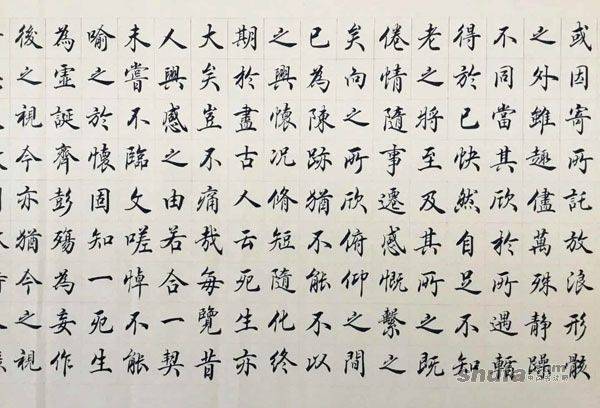 或因寄所託放浪形骸
之外雖趣儘萬殊静躁
不同當其欣於所遇
得於己快然自足不知
老之將至及其所之既
倦情隨事遷感慨繫之
矣向之所欣俯仰之間
已為陳跡猶不能不以
之興懷况脩短隨化終
期於盡古人云死生亦
大矣豈不痛哉每覽昔
人興感之由若合一契
未嘗不臨文嗟悼不能
喻之於懷固知一死生
為虛誕齊彭殤為妄作
後之視今亦猶今之視